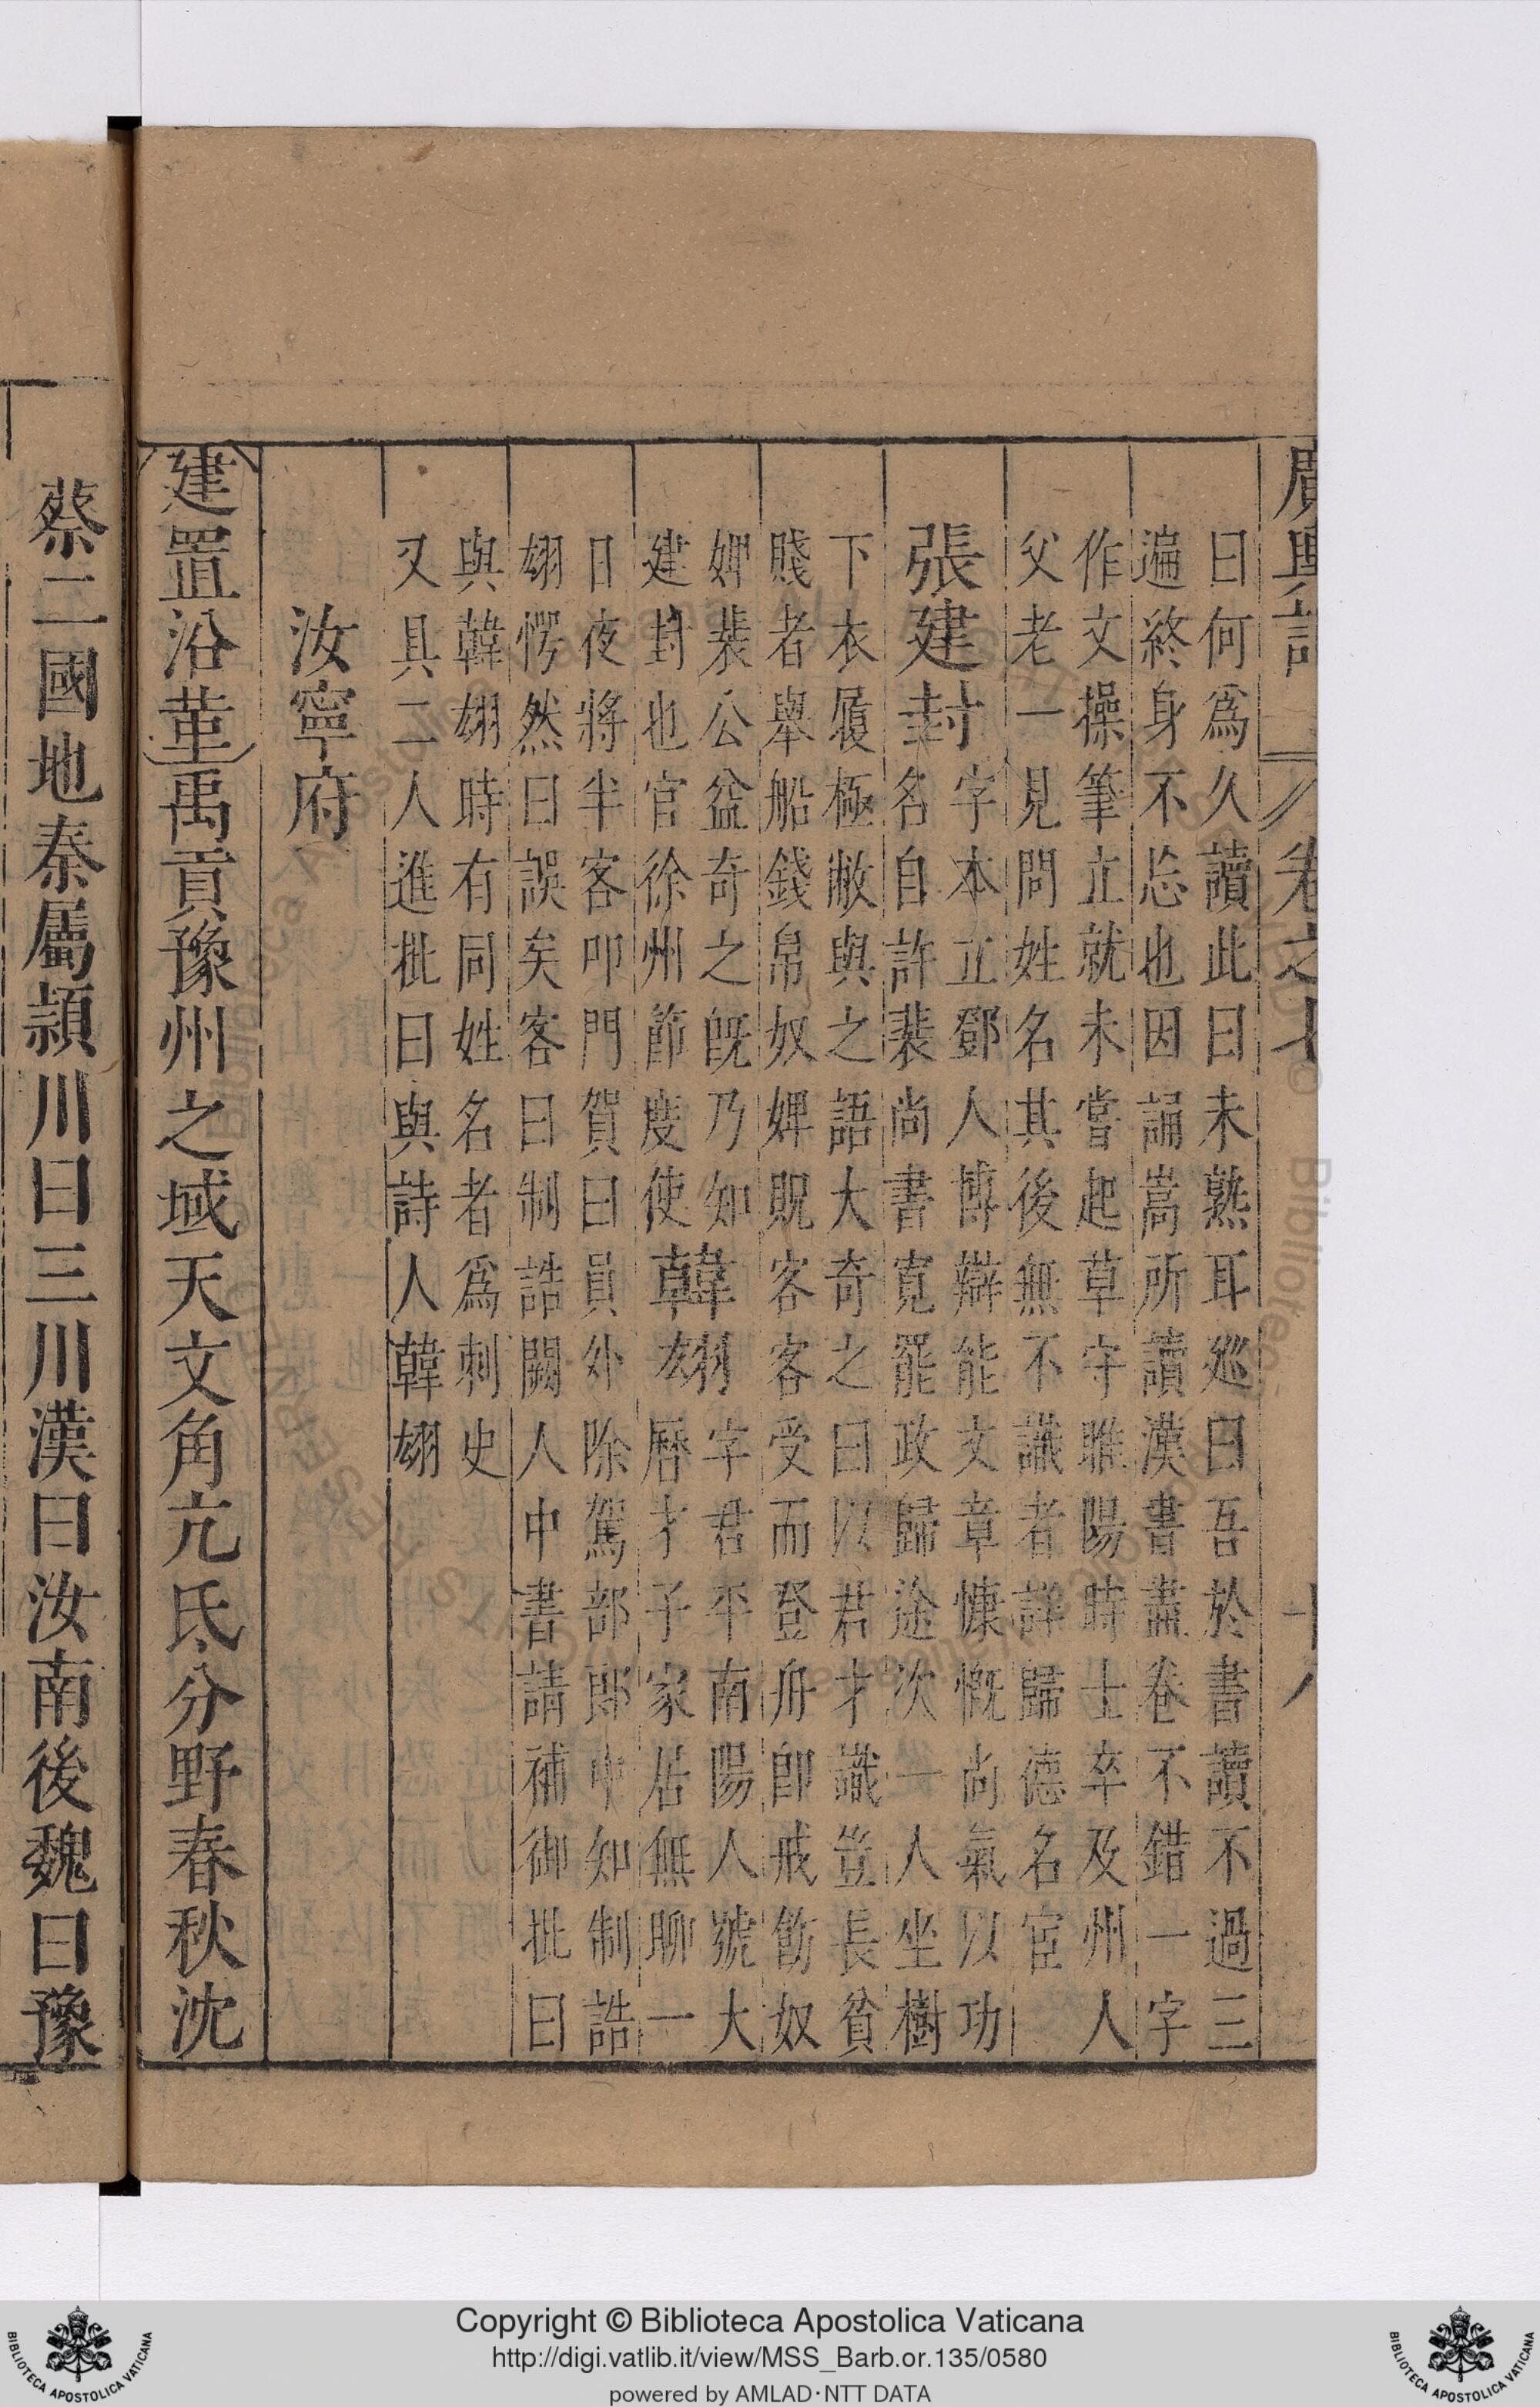 廣輿記 卷之七 十八
曰何爲久讀此曰未熟耳廵曰吾於書讀不過三
遍終身不忘也因誦嵩所讀漢書盡卷不錯一字
作文操筆立就未嘗起草守睢陽時士卒及州人
父老一見問姓名其後無不識者詳歸德名宦
張建封
字本立鄧人博辯能文章慷慨尚氣以功
名自許裴尚書寬罷政歸途次一人坐樹
下衣履極敝與之語大奇之曰以君才識豈長貧
賤者舉船錢帛奴婢貺客客受而登舟卽戒飭奴
婢裴公益奇之旣乃如
建封也官徐州節度使
韓翃
字君平南陽人號大
曆才子家居無聊一
日夜將半客叩門賀曰員外除駕部郎中知制誥
翃愕然曰誤矣客曰制誥闕人中書請補御批曰
與韓翃時有同姓名者爲刺史
又具二人進批曰與詩人韓翃
汝寧府
建置沿革禹貢豫州之域天文角亢氐分野春秋沈
蔡二國地秦屬潁川曰三川漢曰汝南後魏曰豫
Copyright © Biblioteca Apostolica Vaticana
http://digi.vatlib.it/view/MSS_Barb.or.135/0580
powered by AMLAD·NTT DATA
BIBLIOTECA APOSTOLICA VATICANA
BIBLIOTECA APOSTOLICA VATICANA